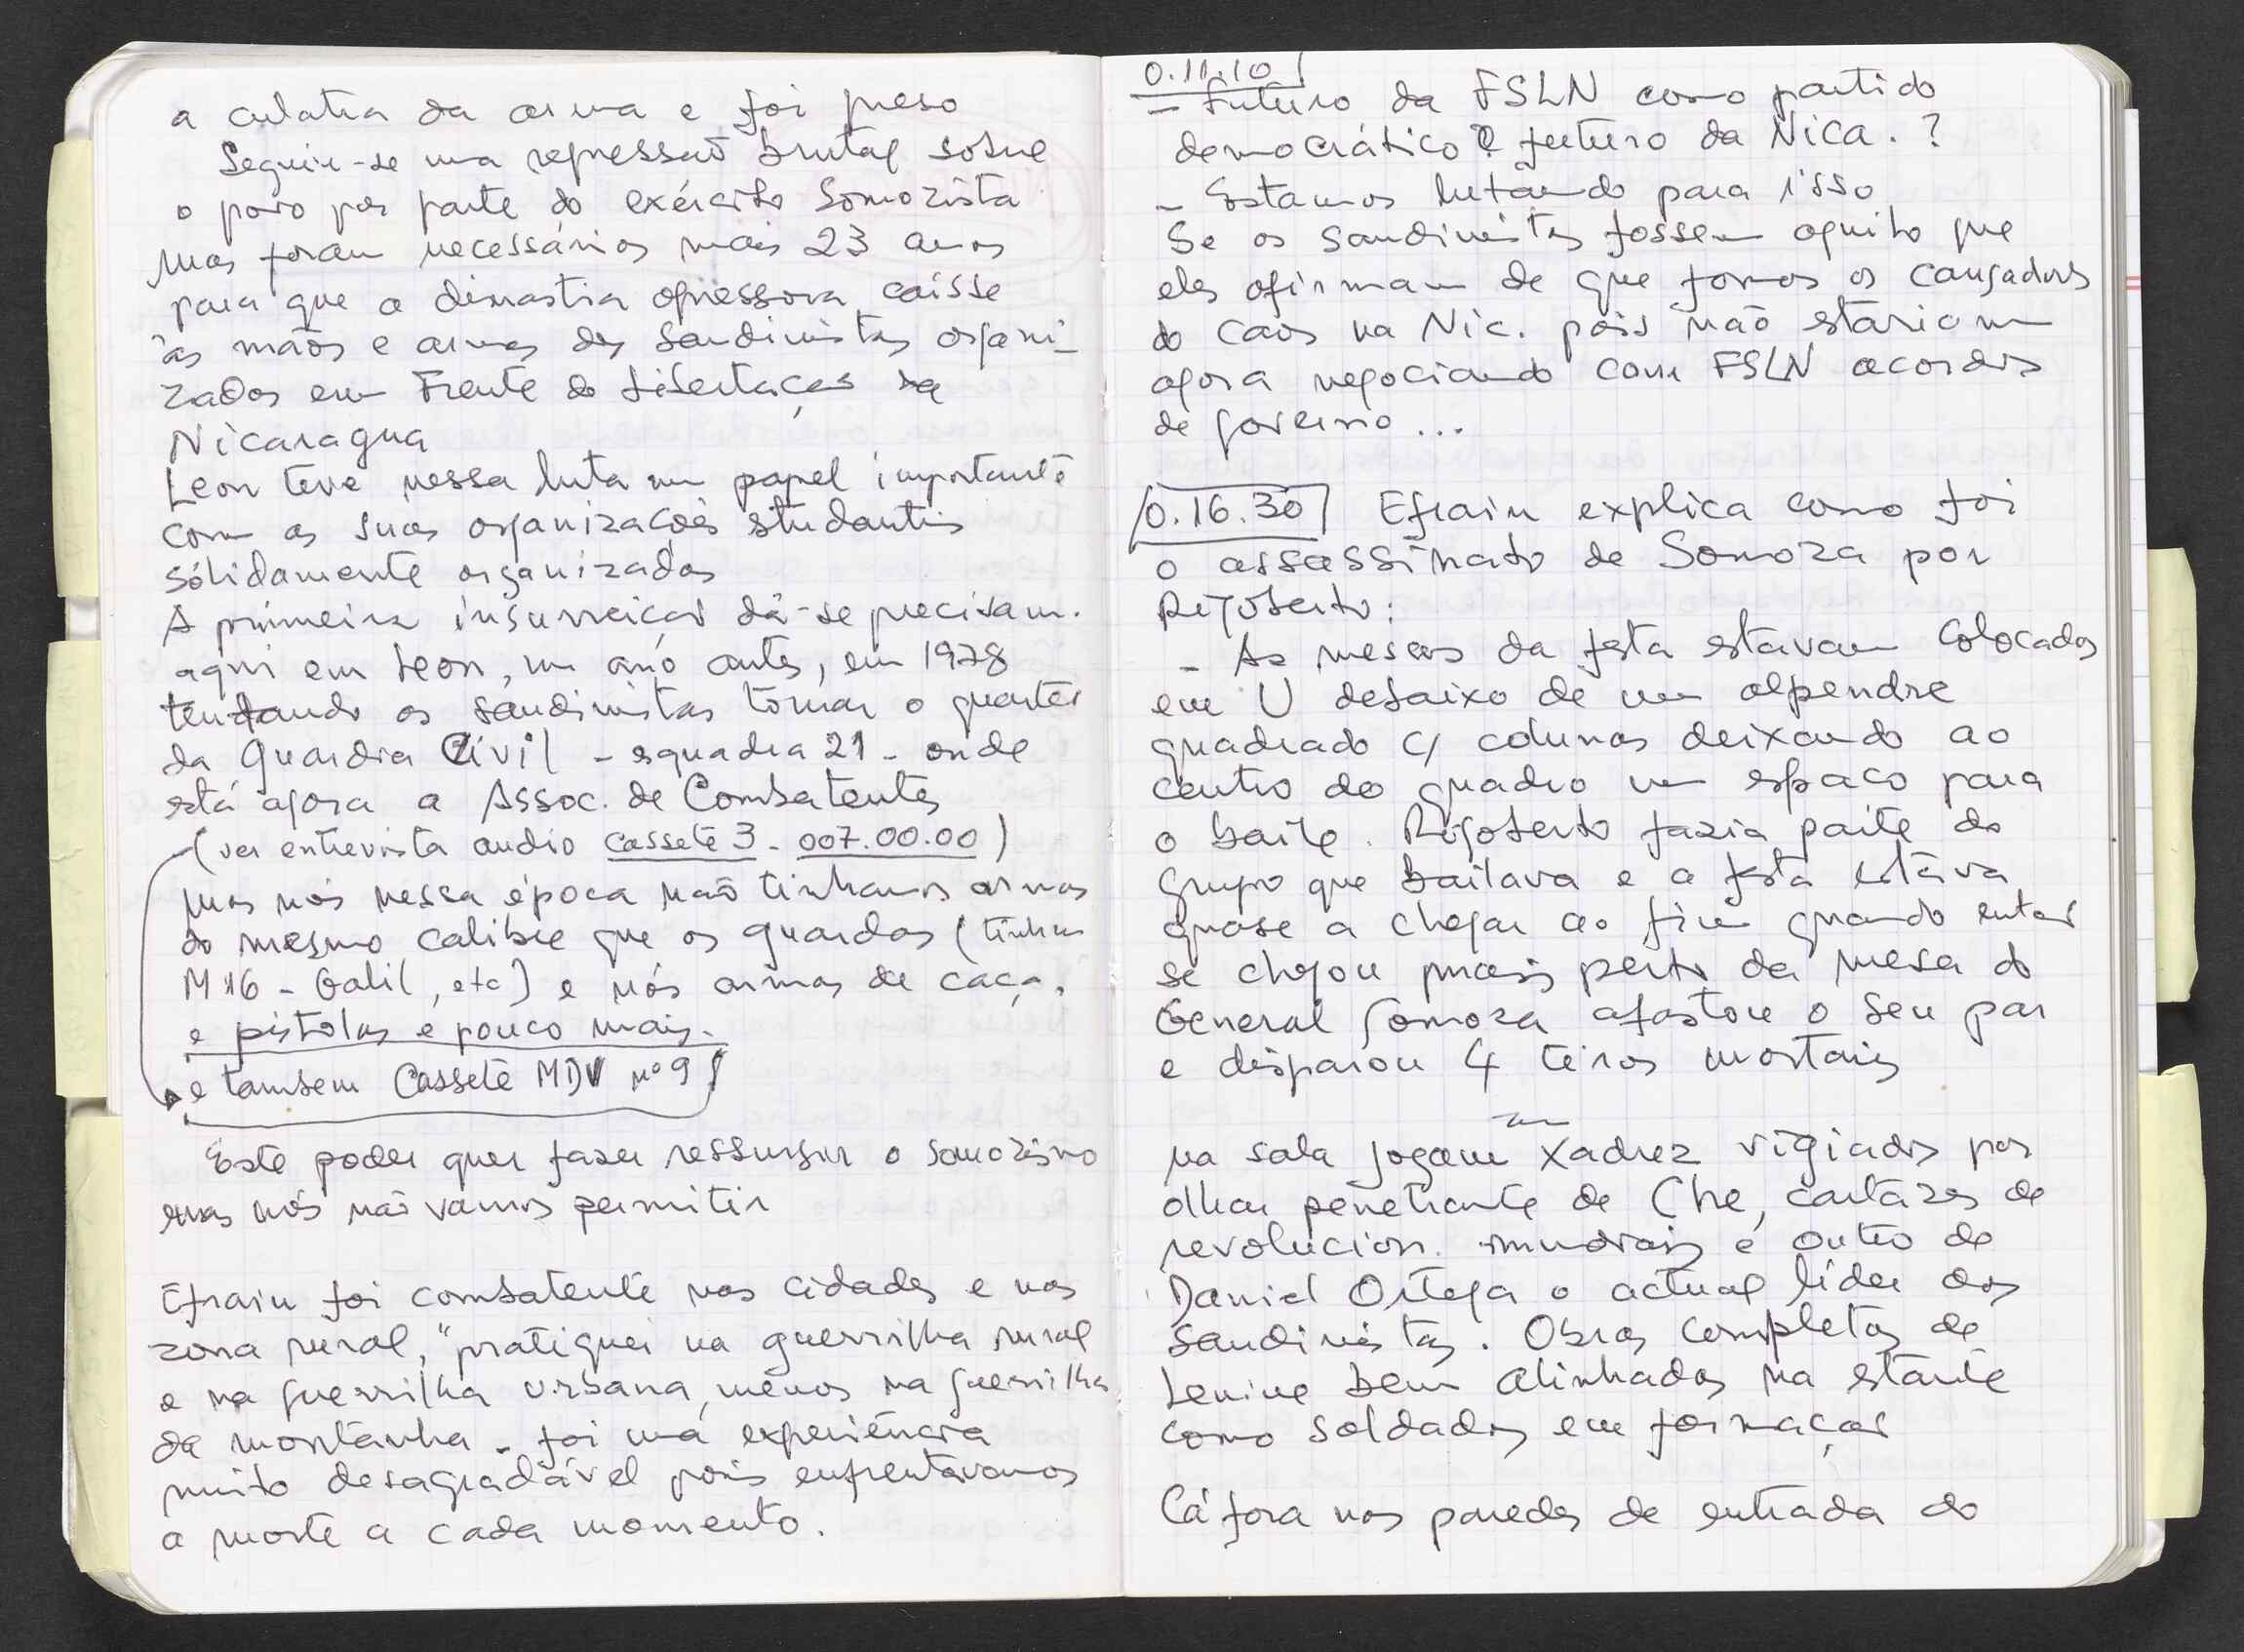 a culatra da arma e foi preso
Seguiu-se uma repressão brutal sobre
o povo por parte do exército Somozista
Mas foram necessários mais 23 anos
para que a dinastia opressora caísse
às mãos e armas dos Sandinistas organi-
zados em Frente de Libertação da
Nicaragua
Leon teve nessa luta um papel importante
com as suas organizações studantis
sólidamente organizadas
A primeira insurreição dá-se precisam.
aqui em Leon, um ano antes, em 1978
tentando os sandinistas tomar o quartel
da Guardia Civil - esquadra 21 - onde
está agora a Assoc. de Combatentes
(ver entrevista audio cassete 3 - 007.00.00)
Mas nós nessa época não tinhamos armas
do mesmo calibre que os guardas (tinham
M16 - Galil, etc) e nós armas de caça,
e pistolas e pouco mais.
e tambem Cassete MDV nº 9
Este poder quer fazer ressurgir o somozismo
mas nós não vamos permitir
Efrain foi combatente nas cidades e nas
zona rural, "pratiquei na guerrilha rural
e na guerrilha urbana, menos na guerrilha
da montanha - foi uma experiência
muito desagradável pois enfrentavamos
a morte a cada momento.
0.11.10
- Futuro da FSLN como partido
democrático e futuro da Nica. ?
- Estamos lutando para isso
Se os sandinistas fossem aquilo que
eles afirmam de que fomos os causadores
do caos na Nic. pois não estariam
agora negociando com FSLN acordos
de governo...
0.16.30 Efrain explica como foi
o assassinato de Somoza por
Rigoberto:
- As mesas da festa estavam colocadas
em U debaixo de um alpendre
quadrado c/ colunas deixando ao
centro do quadro um espaço para
o baile. Rigoberto fazia parte do
grupo que bailava e a festa estava
quase a chegar ao fim quando então
se chegou mais perto da mesa do
General Somoza afastou o seu par
e disparou 4 tiros mortais
na sala jogam xadrez vigiados por
olhar penetrante de Che, cartazes de
revolucion. mundiais e outro de
Daniel Ortega o actual líder dos
Sandinistas. Obras completas de
Lenine bem alinhadas na estante
como soldados em formação
Cá fora nas paredes de entrada do